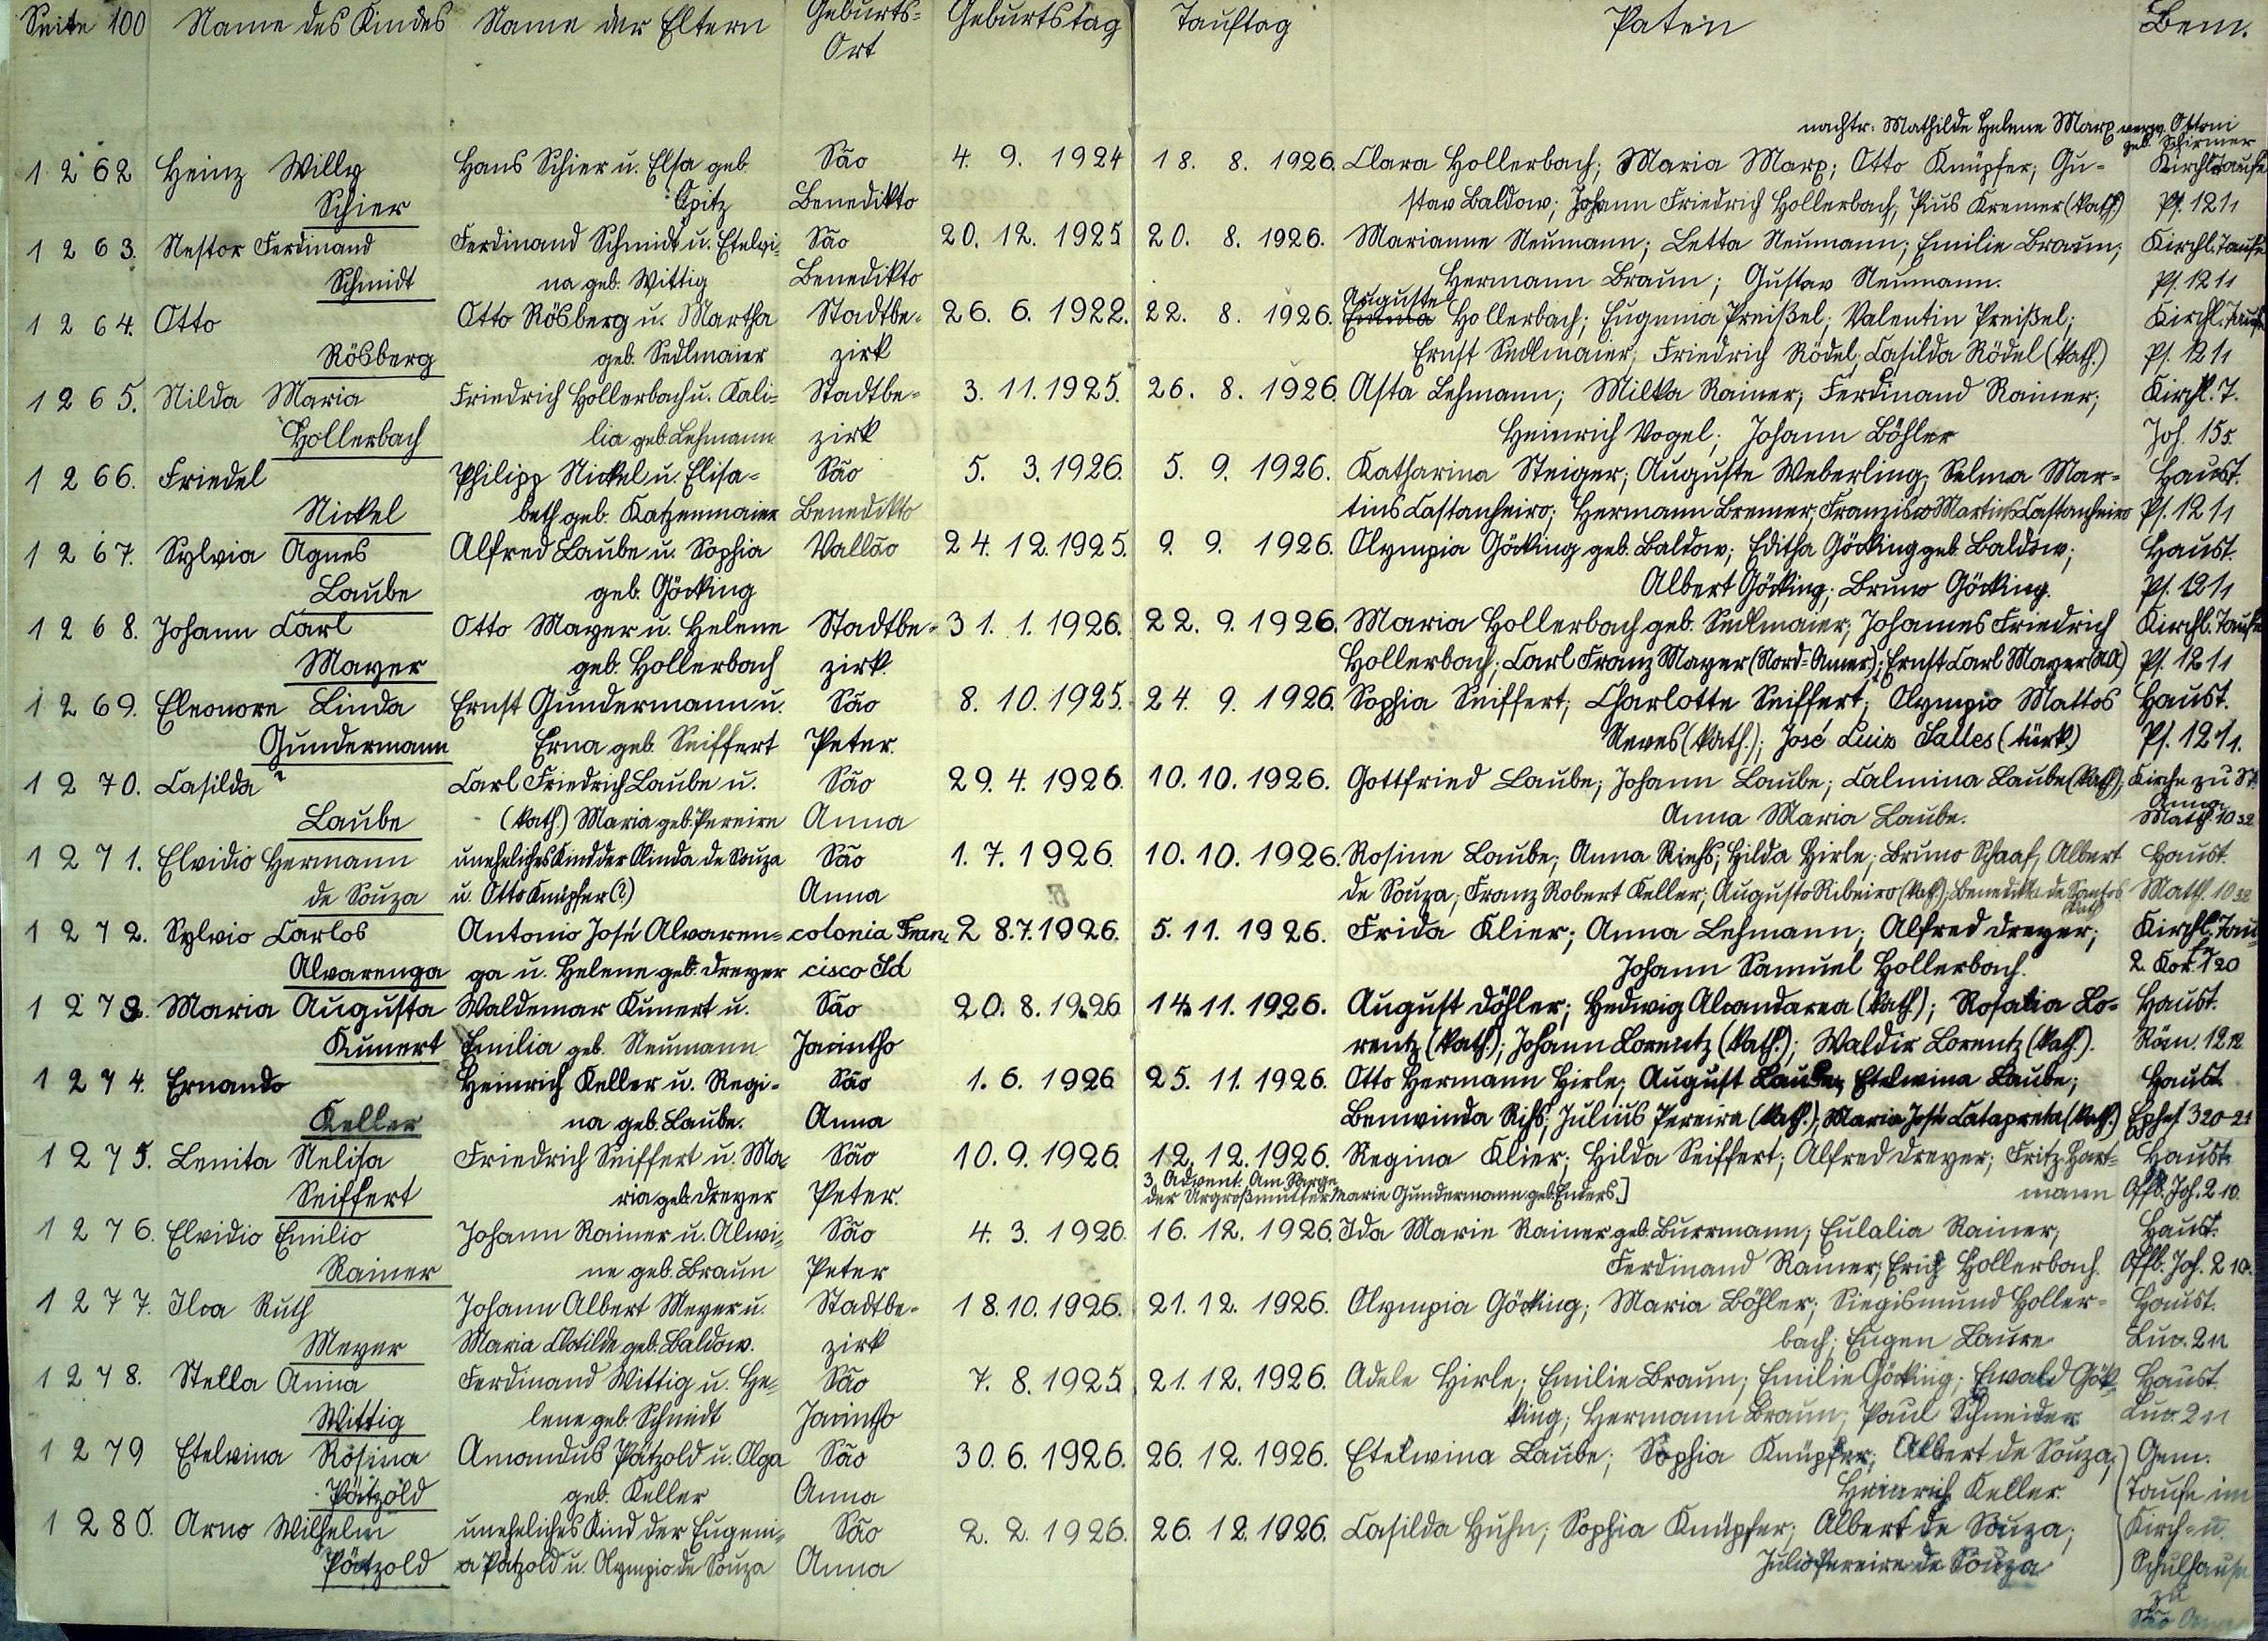 Seite 100 Name des Kindes Name der Eltern Geburts= Geburtstag Tauftag Paten Bem.
Ort
nachtr: Mathilde Helene Marx verw. Ottoni
geb. Schirmer
1262 Heinz Willy Hans Schier u. Elsa geb. São 4. 9. 1924 18. 8. 1926. Clara Hollerbach; Maria Marx; Otto Knüpfer; Gu- Kirchl. Taufe
Schier Opitz Benedikto stav Baldow; Johann Friedrich Hollerbach, Pius Kremer (kath.) Ps. 121 1
1263. Nestor Ferdinand Ferdinand Schmidt u. Etelvi- São 20. 12. 1925 20. 8. 1926. Marianne Neumann; Letta Neumann; Emilie Braun; Kirchl. Taufe
Schmidt na geb. Wittig Benedikto Hermann Braun; Gustav Neumann. Ps. 121 1
Auguste
1264. Otto Otto Rösberg u. Martha Stadtbe- 26. 6. 1922. 22. 8. 1926. Emma Hollerbach; Eugenia Preißel; Valentin Preißel; Kirchl. Taufe
Rösberg geb. Sedlmaier zirk Ernst Sedlmaier; Friedrich Rödel; Casilda Rödel (kath.) Ps. 121 1
1265. Nilda Maria Friedrich Hollerbach u. Kali- Stadtbe- 3. 11. 1925. 26. 8. 1926. Asta Lehmann; Milka Rainer; Ferdinand Rainer; Kirchl. T.
Hollerbach lia geb. Lehmann zirk Heinrich Vogel; Johann Böhler Joh. 15 5.
1266. Friedel Philipp Nickel u. Elisa- São 5. 3. 1926. 5. 9. 1926. Katharina Steiger; Auguste Weberling; Selma Mar- Haust.
Nickel beth geb. Katzenmaier Benedikto tins Castanheiro; Hermann Bremer; Franzisco Martins Castanheiro Ps. 121 1
1267. Sylvia Agnes Alfred Laube u. Sophia Vallão 24. 12. 1925. 9. 9. 1926. Olympia Göcking geb. Baldow; Editha Göcking geb. Baldow; Haust.
Laube geb. Göcking Albert Göcking; Bruno Göcking. Ps. 121 1
1268. Johann Carl Otto Mayer u. Helene Stadtbe- 31. 1. 1926. 22. 9. 1926. Maria Hollerbach geb. Sedlmaier; Johannes Friedrich Kirchl. Taufe
Mayer geb. Hollerbach zirk. Hollerbach; Carl Franz Mayer (Nord-Amer.); Ernst Carl Mayer (N.A.) Ps. 121 1
1269. Eleonore Linda Ernst Gundermann u. São 8. 10. 1925. 24. 9. 1926. Sophia Seiffert; Charlotte Seiffert; Olympio Mattos Haust.
Gundermann Erna geb. Seiffert Peter. Neves (kath.); José Luiz Salles (türk.) Ps. 121 1.
1270. Casilda Carl Friedrich Laube u. São 29. 4. 1926. 10. 10. 1926. Gottfried Laube; Johann Laube; Calmina Laube (kath.); Kirche zu St.
Anna
Laube (kath.) Maria geb. Pereira Anna Anna Maria Laube. Matth. 10 32
1271. Elvidio Hermann uneheliches Kind der Olinda de Souza São 1. 7. 1926. 10. 10. 1926. Rosine Laube; Anna Riehs; Hilda Hirle; Bruno Schaaf; Albert Haust.
de Souza u. Otto Knüpfer (?) Anna de Souza; Franz Robert Keller; Augusto Ribeiro (kath); Benedikta de Santos Matth. 10 32
kath
1272. Sylvio Carlos Antonio José Alvaren- colonia Fran- 28. 7. 1926. 5. 11. 1926. Frida Klier; Anna Lehmann; Alfred Dreyer; Kirchl. Tau-
Alvarenga ga u. Helene geb. Dreyer cisco Sá Johann Samuel Hollerbach. 2. Kor. 1 20
1273. Maria Augusta Waldemar Kunert u. São 20. 8. 1926 14. 11. 1926. August Döhler; Hedwig Alcandarea (kath); Rosalia Lo- Haust.
Kunert Emilia geb. Neumann Jacintho rentz (kath.); Johann Lorentz (kath.); Waldir Lorentz (kath.). Röm. 12 12
1274. Ernando Heinrich Keller u. Regi- São 1. 6. 1926 25. 11. 1926. Otto Hermann Hirle; August Laube; Etelwina Laube; Haust.
Keller na geb. Laube. Anna Benwinda Rihs; Julius Pereira (kath.); Maria José Catapreta (kath.) Ephes. 3 20-21
1275. Lenita Nelisa Friedrich Seiffert u. Ma- São 10. 9. 1926. 12. 12. 1926. Regina Klier; Hilda Seiffert; Alfred Dreyer; Fritz Hart- Haust.
3. Advent. Am Sarge
Seiffert ria geb. Dreyer Peter. der Urgroßmutter Marie Gundermann geb. Enders.] mann Offb. Joh. 2 10.
1276. Elvidio Emilio Johann Rainer u. Alwi- São 4. 3. 1926. 16. 12. 1926. Ida Marie Rainer geb. Burrmann; Eulalia Rainer; Haust.
Rainer ne geb. Braun Peter Ferdinand Rainer; Erich Hollerbach. Offb. Joh. 2 10.
1277. Ilca Ruth Johann Albert Meyer u. Stadtbe- 18. 10. 1926. 21. 12. 1926. Olympia Göcking; Maria Böhler; Siegismund Holler- Haust.
Meyer Maria Clotilde geb. Baldow. zirk bach; Eugen Laure Luc. 2 11
1278. Stella Anna Ferdinand Wittig u. He- São 7. 8. 1925 21. 12. 1926. Adele Hirle; Emilie Braun; Emilie Göcking; Ewald Gök- Haust.
Wittig lene geb. Schmidt Jacintho king; Hermann Braun; Paul Schneider Luc. 2 11
1279 Etelvina Rosina Amandus Pätzold u. Olga São 30. 6. 1926. 26. 12. 1926. Etelwina Laube; Sophia Knüpfer; Albert de Souza; Gem.
Pätzold geb. Keller Anna Heinrich Keller. Taufe im
1280. Arno Wilhelm uneheliches Kind der Eugeni- São 2. 2. 1926. 26. 12. 1926. Casilda Huhn; Sophia Knüpfer; Albert de Souza; Kirch- u.
Pätzold a Pätzold u. Olympio de Souza Anna Julio Pereira de Souza Schulhause
zu
São Anna